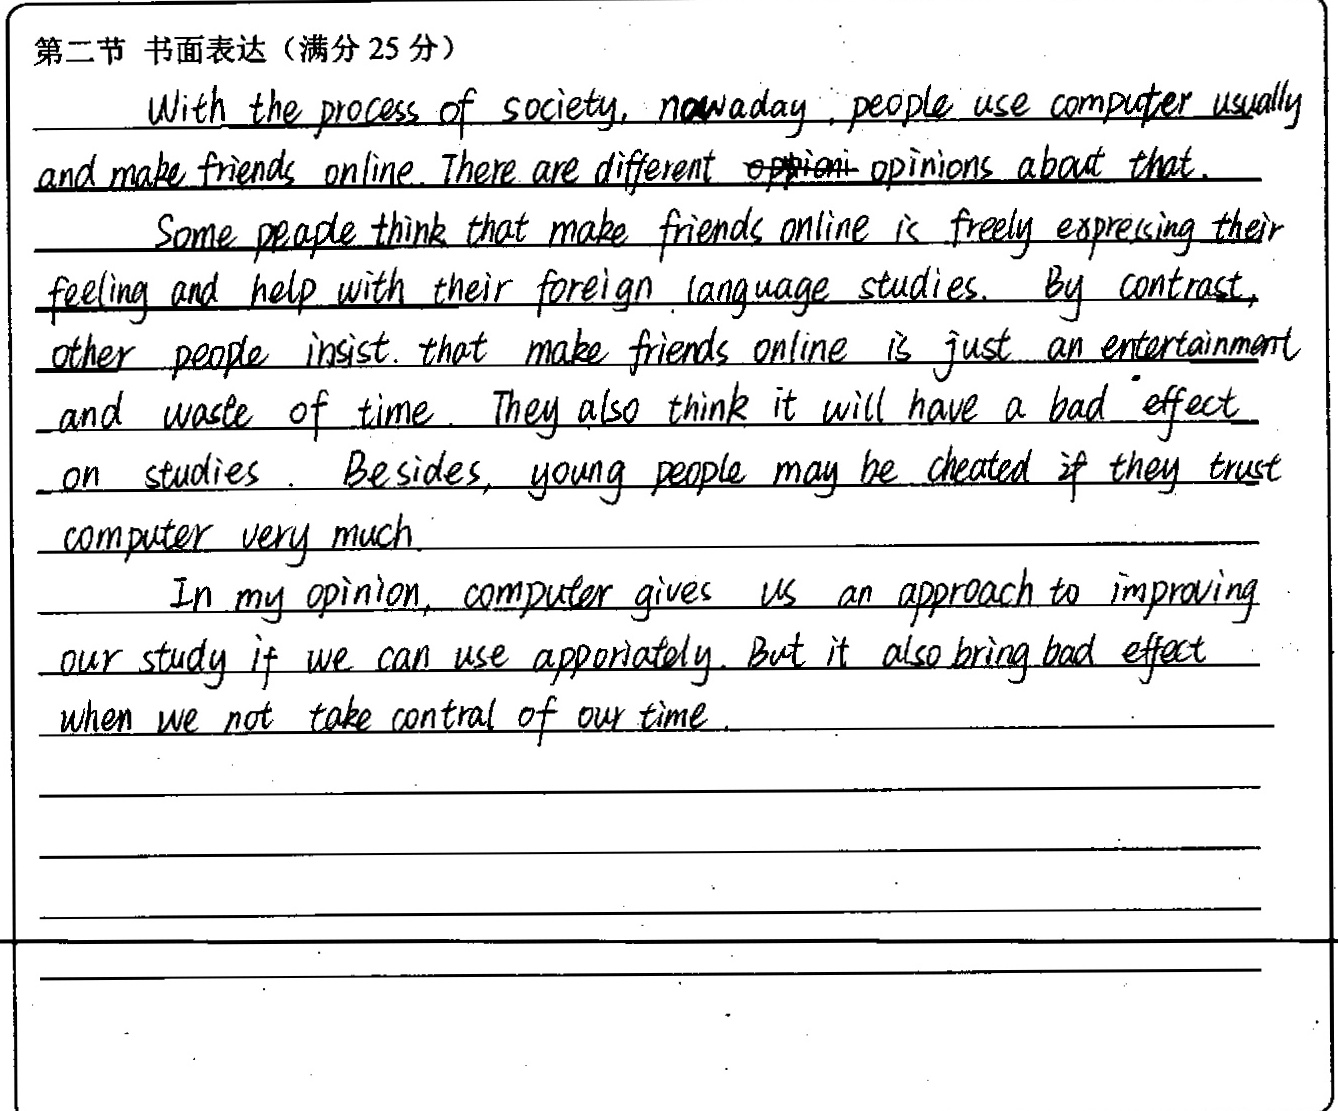 第二节 书面表达（满分 25 分）
With the process of society, nowaday, people use computer usually
and make friends online. There are different opinions about that.
Some peaple think that make friends online is freely expressing their
feeling and help with their foreign language studies. By contrast,
other people insist that make friends online is just an entertainment
and waste of time. They also think it will have a bad effect
on studies. Besides, young people may be cheated if they trust
computer very much.
In my opinion, computer gives us an approach to improving
our study if we can use apporiately. But it also bring bad effect
when we not take contral of our time.